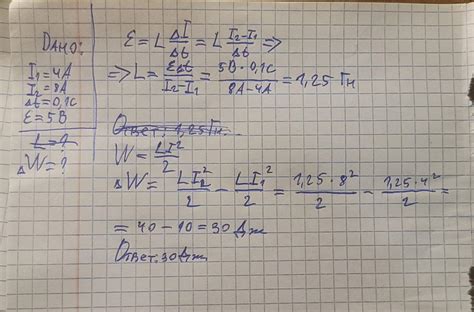 Дано:
I₁=4А
I₂=8А
Δt=0,1с
Ɛ=5В
L=?
ΔW=?
Ɛ=L ΔI/Δt = L (I₂-I₁)/Δt ⇒
⇒ L= ƐΔt/(I₂-I₁) = 5В·0,1с/(8А-4А) = 1,25 Гн
Ответ: 1,25 Гн.
W= LI²/2
ΔW= LI₂²/2 - LI₁²/2 = 1,25·8²/2 - 1,25·4²/2 =
= 40-10=30 Дж
Ответ: 30 Дж